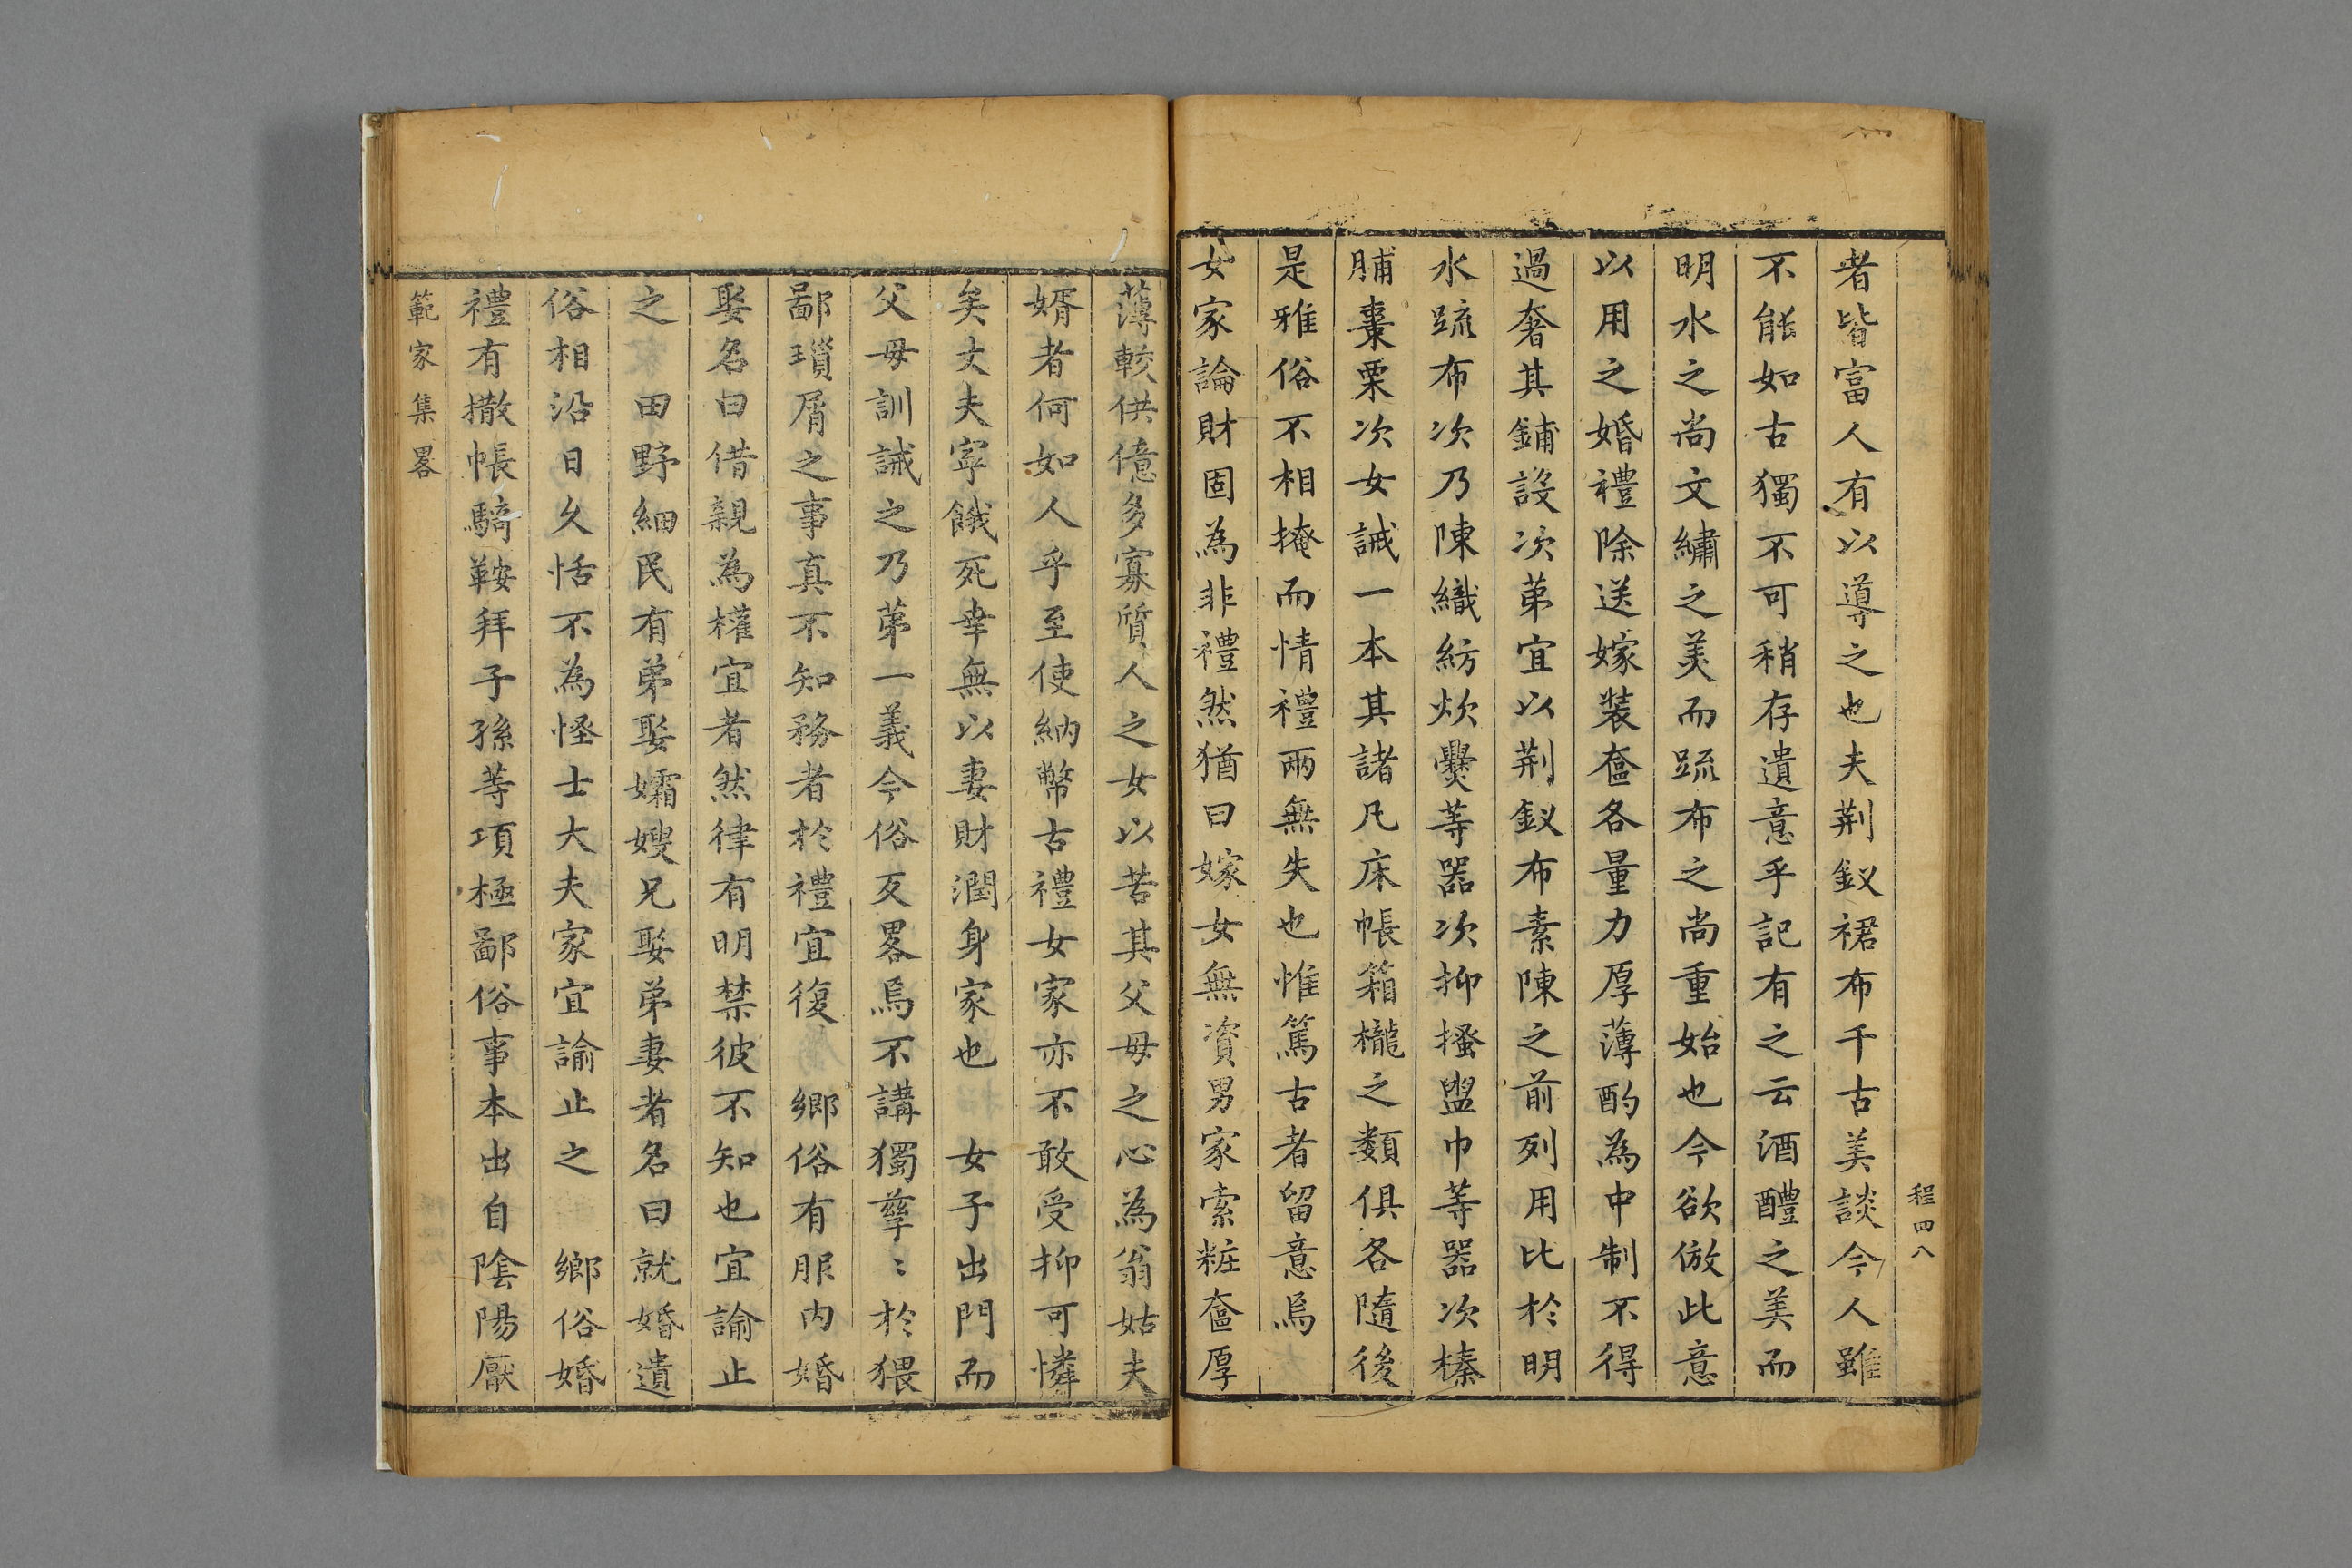 程四八
者皆富人有以導之也夫荆釵裙布千古美談今人雖
不能如古獨不可稍存遺意乎記有之云酒醴之美而
明水之尚文繡之美而疏布之尚重始也今欲倣此意
以用之婚禮除送嫁裝奩各量力厚薄酌為中制不得
過奢其鋪設次苐宜以荆釵布素陳之前列用比於明
水疏布次乃陳織紡炊爨等器次抑搔盥巾等器次榛
脯棗栗次女誡一本其諸凡床帳箱櫳之類俱各隨後
是雅俗不相掩而情禮兩無失也惟篤古者留意焉
女家論財固為非禮然猶曰嫁女無資男家索粧奩厚
薄較供億多寡質人之女以苦其父母之心為翁姑夫
婿者何如人乎至使納幣古禮女家亦不敢受抑可憐
矣丈夫寧餓死幸無以妻財潤身家也 女子出門而
父母訓誡之乃苐一義今俗反畧焉不講獨孳〻於猥
鄙瑣屑之事真不知務者於禮宜復 鄉俗有服內婚
娶名曰借親為權宜者然律有明禁彼不知也宜諭止
之 田野細民有弟娶孀嫂兄娶弟妻者名曰就婚遺
俗相沿日久恬不為怪士大夫家宜諭止之 鄉俗婚
禮有撒帳騎鞍拜子孫等項極鄙俗事本出自陰陽厭
範家集畧